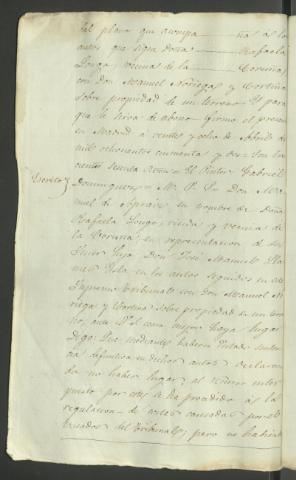 del plano que acompa——ñas á los
autos que sigue doña —— Rafaela
Longo, vecina de la —— Coruña,
con Don Manuel Noriega y Cortina
sobre propiedad de un terreno. Y para
que le sirva de abono firmo el presente
en Madrid á veinte y ocho de Abril de
mil ochocientos cincuenta y dos = Son los
cientos reales = El Visitor Gabriel
Escrito} Dominguez = M. P. S. Don Ma-
nuel de Aprais, en nombre de Doña
Rafaela Longo, viuda y vecina de
la Coruña, en representacion de su
hijo Don José Manuel
en los autos seguidos en este
Supremo Tribunal con Don Manuel No-
riega y Cortina sobre propiedad en un terre-
no, ante V. A. como mejor haya lugar
Digo: Que mediante haberse dictado senten-
cia definitiva en dichos autos, declaran-
do no haber lugar al recurso inter-
puesto por estos se ha procedido á la
regulacion de costas causadas por el
del Tribunal; pero no habiendo